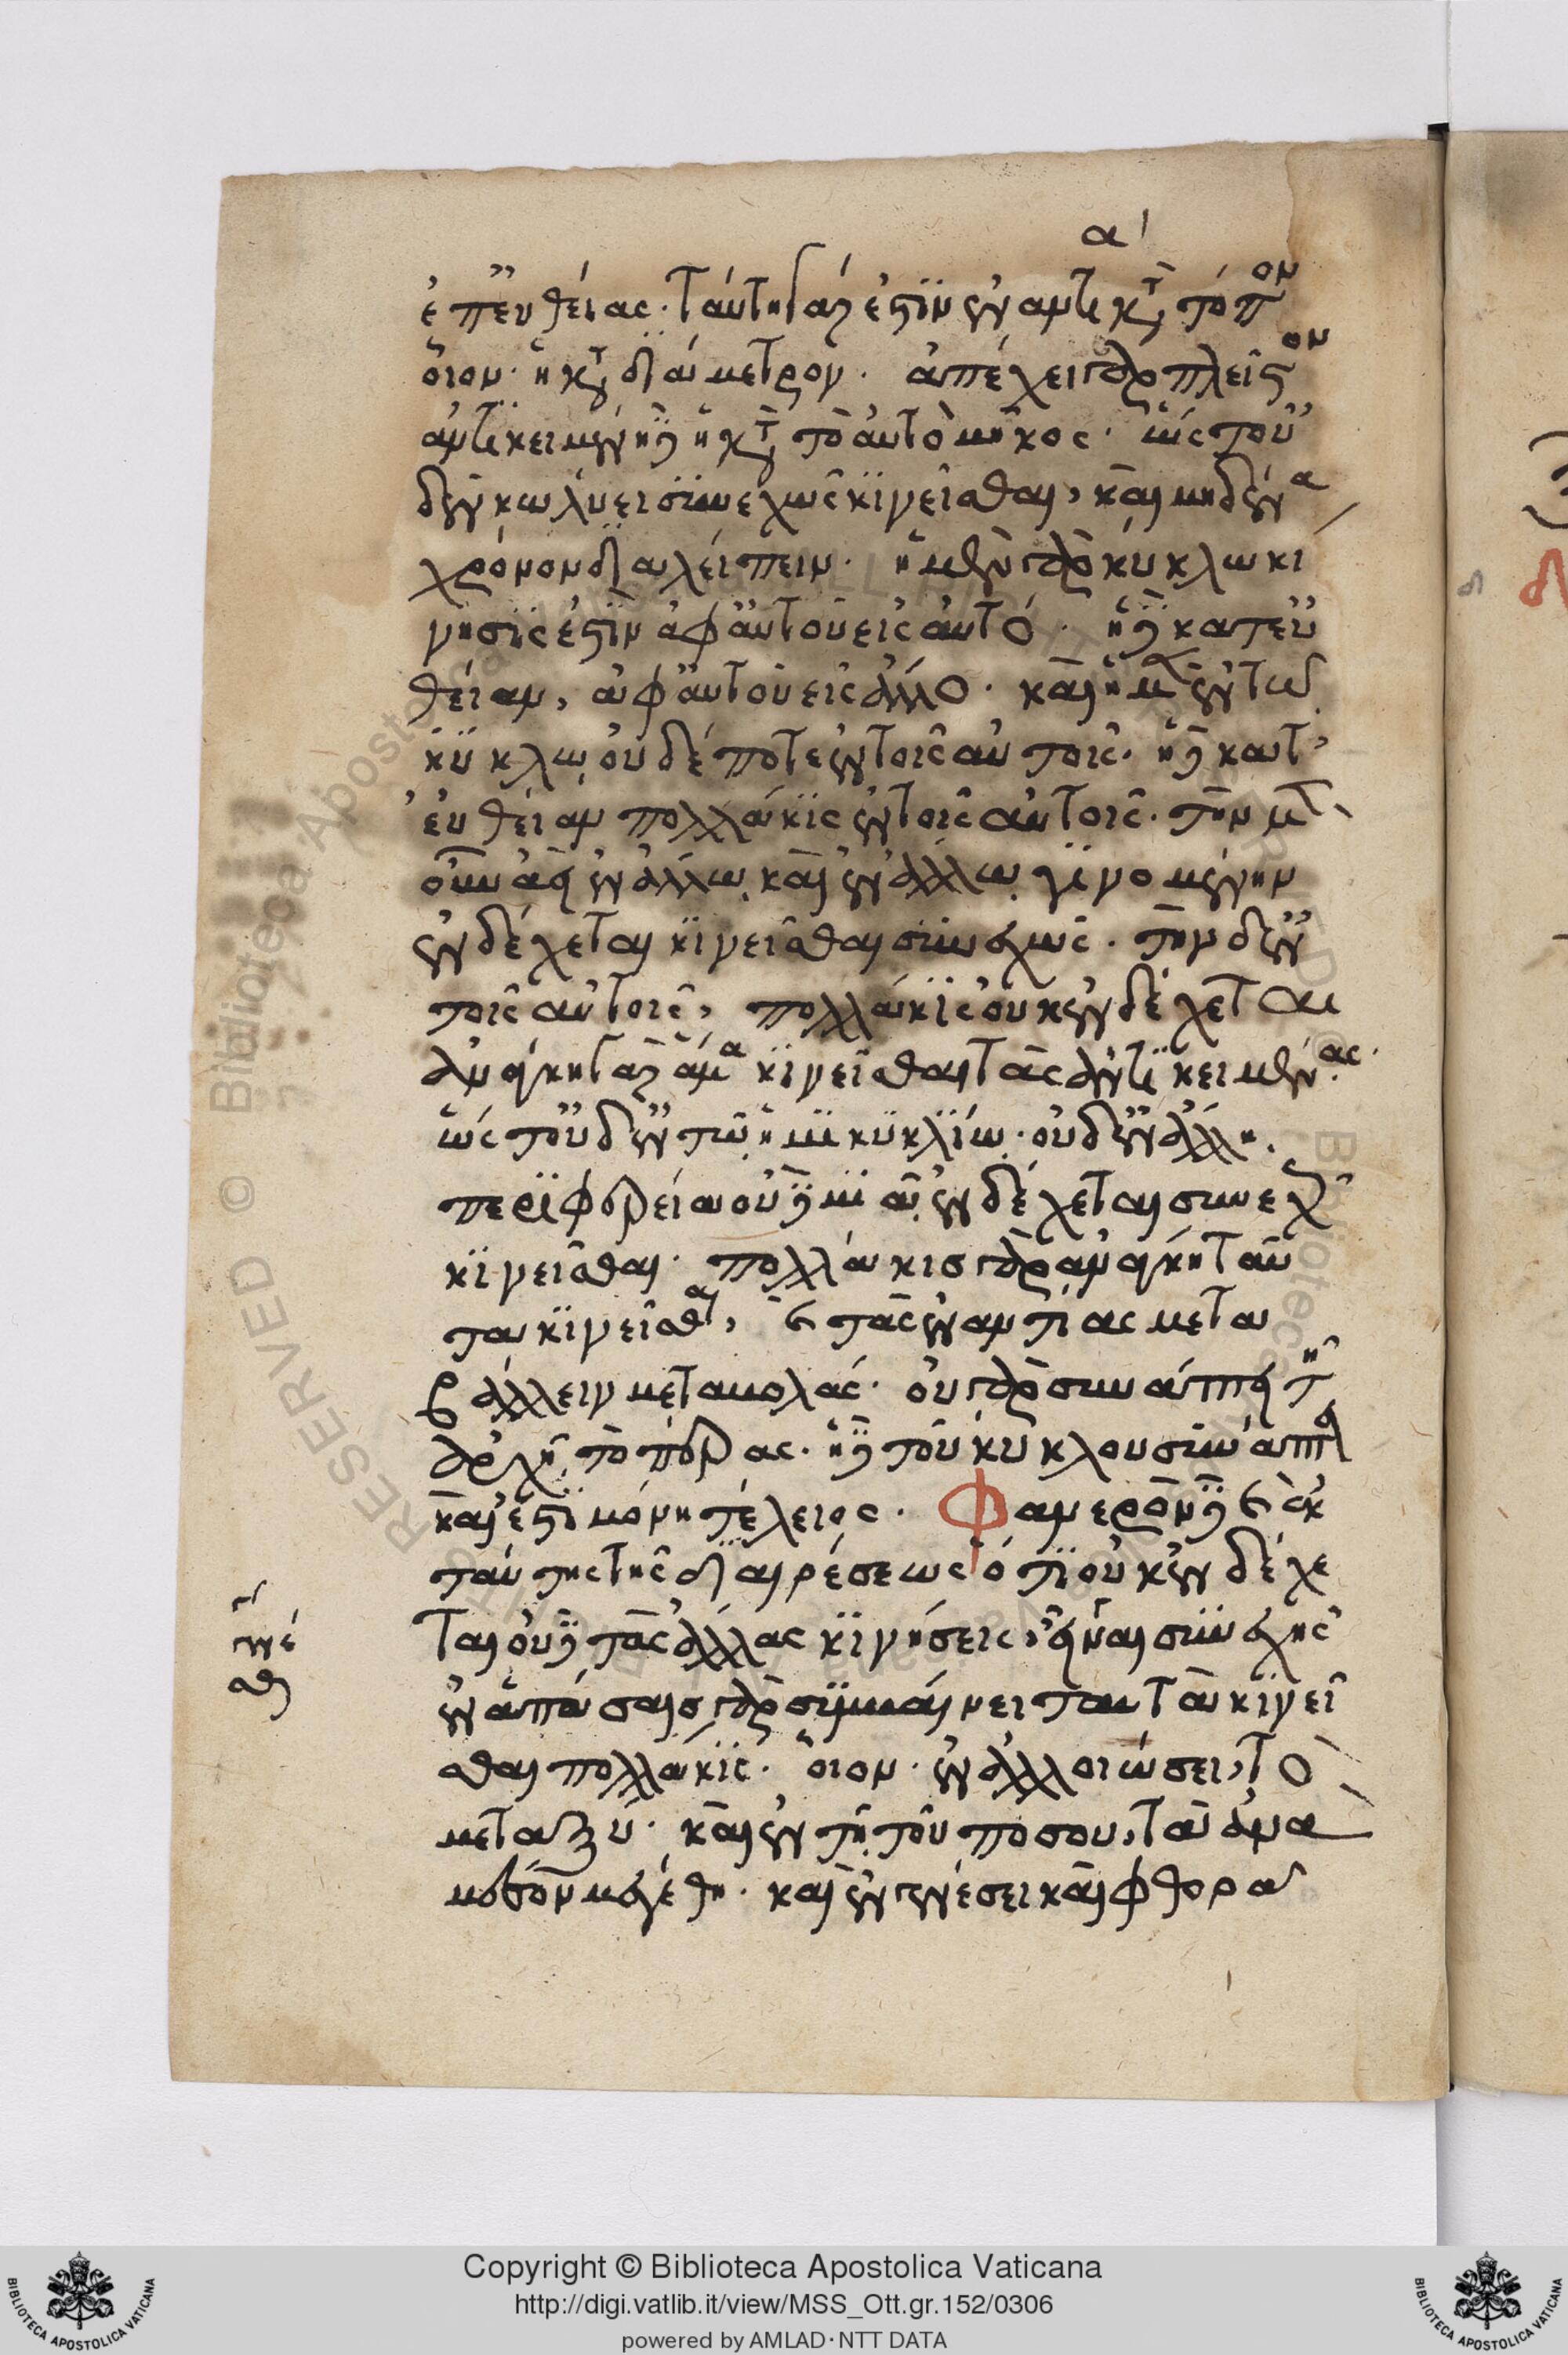 α΄
ἐπ' εὐθείας· ταύτῃ γάρ ἐστιν ἐναντία κατὰ τόπον
οἷον ἡ κατὰ διάμετρον· ἀπέχει γὰρ πλεῖστον
ἀντικειμένη δὲ ἡ κατὰ τὸ αὐτὸ μῆκος· ὥστ' οὐ
δὲν κωλύει συνεχῶς κινεῖσθαι, καὶ μηδένα
χρόνον διαλείπειν· ἡ μὲν γὰρ κύκλω κί
νησίς ἐστιν ἀφ' αὑτοῦ εἰς αὑτό· ἡ δὲ κατ' εὐ
θεῖαν, ἀφ' αὑτοῦ εἰς ἄλλο· καὶ ἡ μὲν ἐν τῶ
κύκλῳ οὐδέποτε ἐν τοῖς αὐτοῖς· ἡ δὲ κατ'
εὐθεῖαν πολλάκις ἐν τοῖς αὐτοῖς· τὴν μὲν
οὖν ἀεὶ ἐν ἄλλῳ καὶ ἐν ἄλλῳ γινομένην
ἐνδέχεται κινεῖσθαι συνεχῶς· τὴν δ' ἐν
τοῖς αὐτοῖς, πολλάκις οὐκ ἐνδέχεται
ἀνάγκη γὰρ ἅμα κινεῖσθαι τὰς ἀντικειμένας·
ὥστ' οὐδ' ἐν τῷ ἡμικυκλίῳ· οὐδ' ἐν ἄλλῃ
περιφερείᾳ οὐδεμιᾷ ἐνδέχεται συνεχῶς
κινεῖσθαι· πολλάκις γὰρ ἀνάγκη ταὐ
τὰ κινεῖσθαι, καὶ τὰς ἐναντίας μετα
βάλλειν μεταβολάς· οὐ γὰρ συνάπτει τῇ
ἀρχῇ τὸ πέρας· ἡ δὲ τοῦ κύκλου συνάπτει
καὶ ἔστι μόνη τέλειος· Φανερὸν δὲ καὶ ἐκ
ταύτης τῆς διαιρέσεως ὅτι οὐκ ἐνδέχε
ται οὐδὲ τὰς ἄλλας κινήσεις, εἶναι συνεχεῖς
ἐν ἁπάσαις γὰρ συμβαίνει ταὐτὰ κινεῖ
σθαι πολλάκις· οἷον· ἐν ἀλλοιώσει, τὸ
μεταξύ· καὶ ἐν τῇ τοῦ ποσοῦ, τὰ ἀνὰ
μέσον μεγέθη· καὶ ἐν γενέσει καὶ φθορᾶ